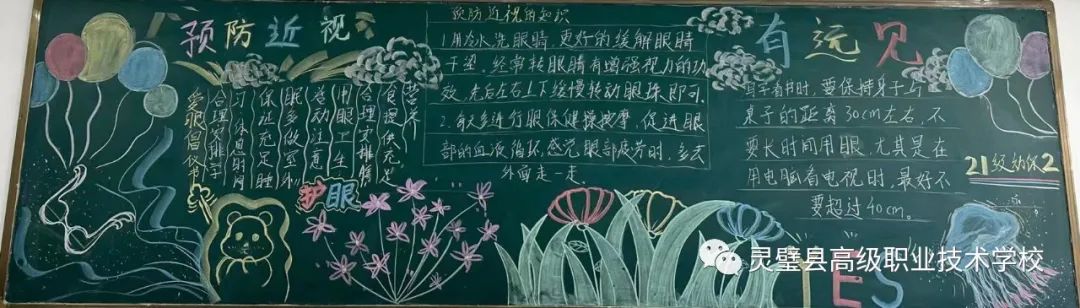 预防近视
爱眼倡仪书
合理安排学
习、休息时间
保证充足睡
眠多做室外
活动注意
用眼卫生
合理安排膳
食提供充足
营养
护眼
预防近视的知识
1.用冷水洗眼睛,更好的缓解眼睛
干涩,经常转眼睛有增强视力的功
效,先后左右上下缓慢转动眼珠即可.
2.每天多进行眼保健操按摩,促进眼
部的血液循环,感觉眼部疲劳时,多去
外面走一走
有远见
写字看书时,要保持身子与
桌子的距离30cm左右,不
要长时间用眼尤其是在
用电脑看电视时,最好不
要超过40cm。
21级幼保2
ES
灵璧县高级职业技术学校